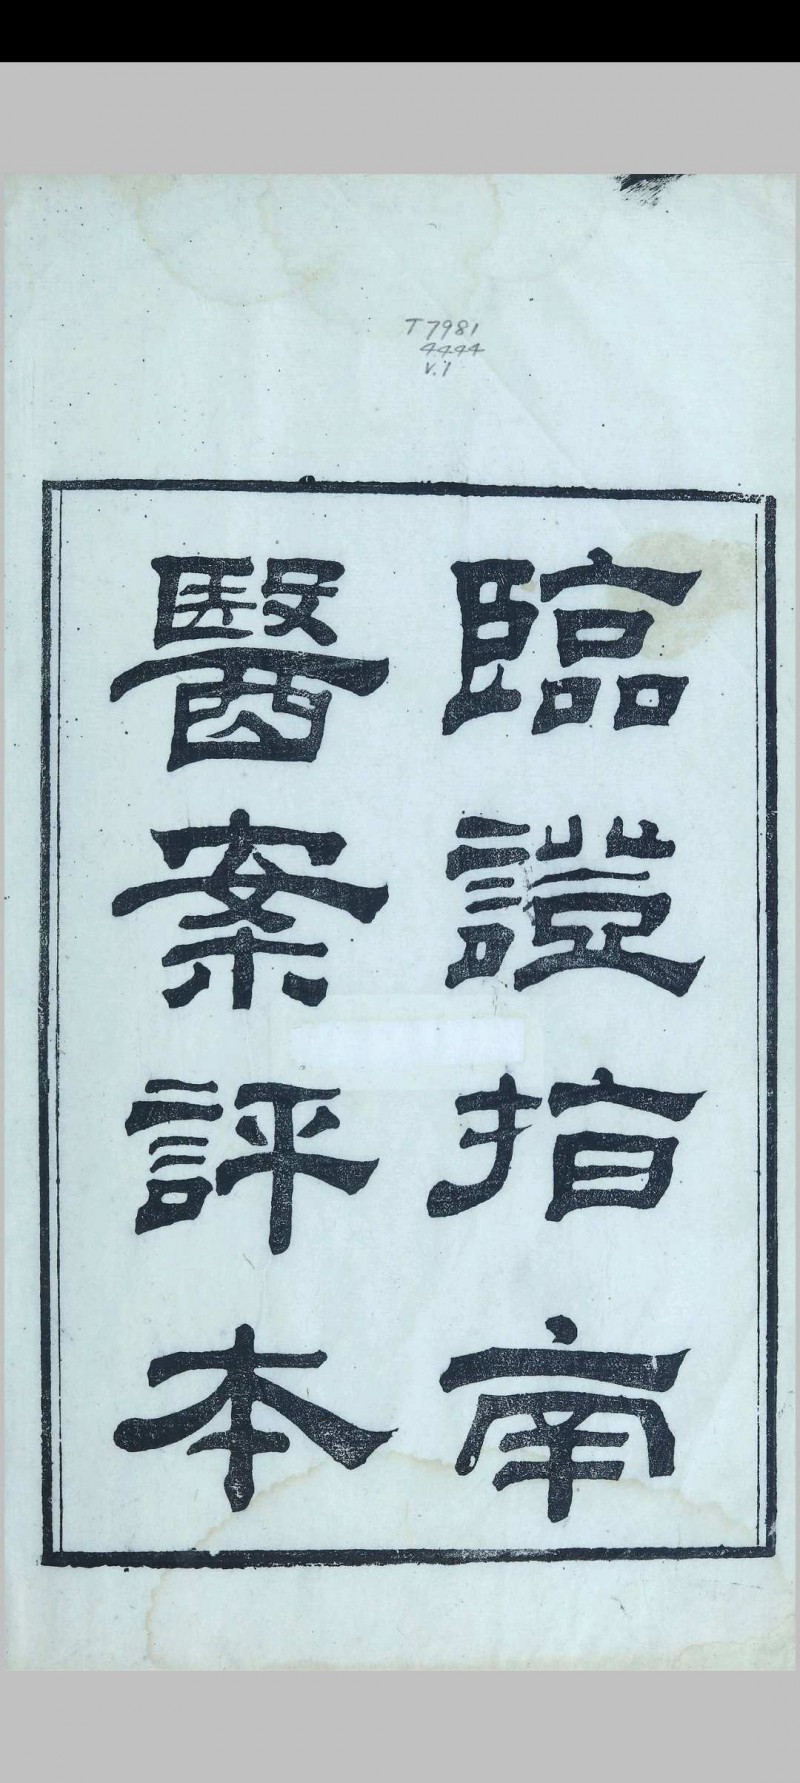 T7981
4444
V.1
臨證指南
醫案評本